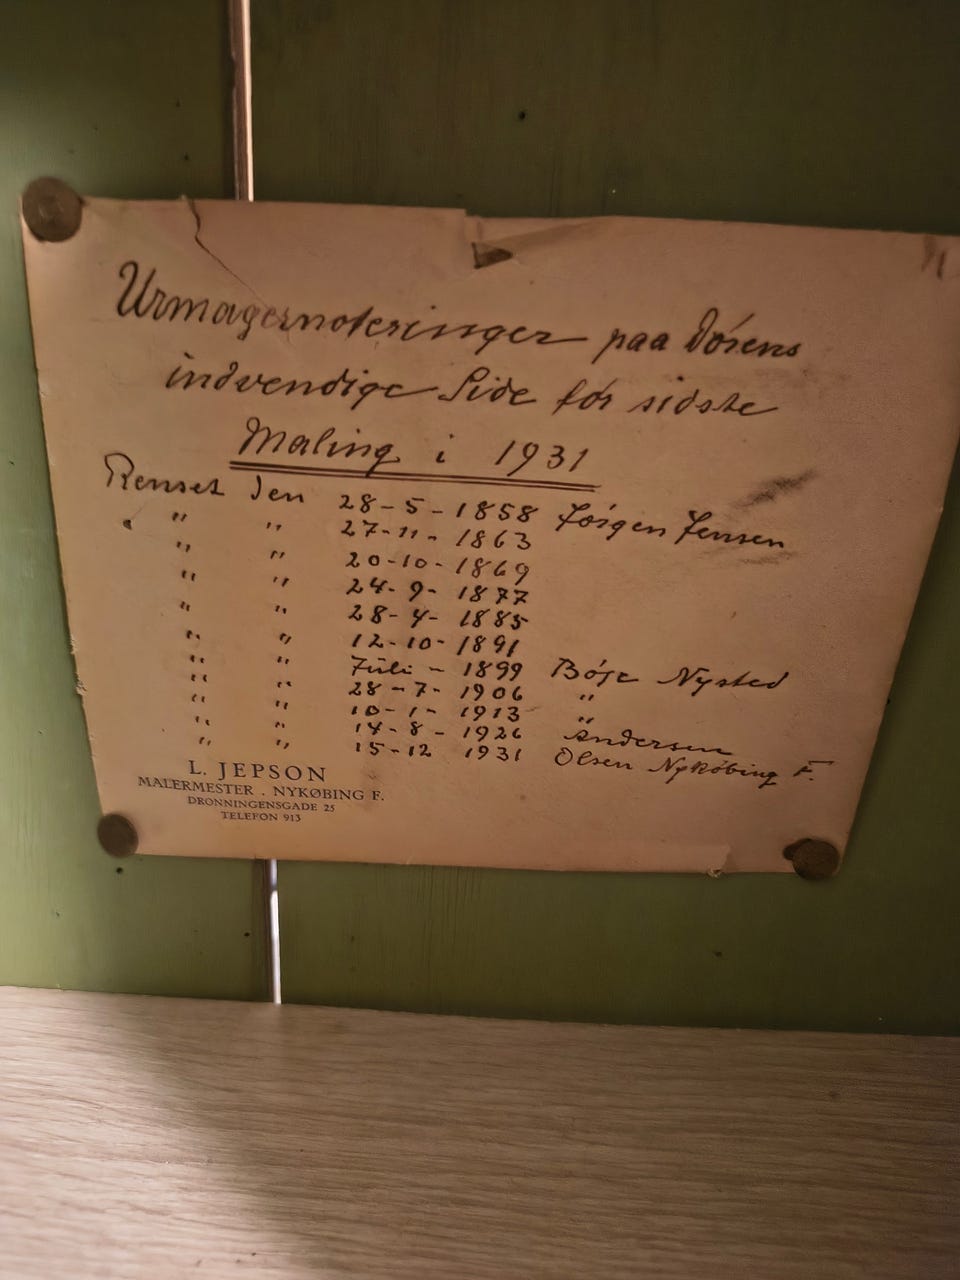 Urmagernoteringer paa Dörens
indvendige Side för sidste
Maling i 1931
Renset den 28-5-1858 Jörgen Jensen
" " 27-11-1863
" " 20-10-1869
" " 24-9-1877
" " 28-4-1885
" " 12-10-1891
" " Juli - 1899 Böje Nysted
" " 28-7-1906 "
" " 10-1-1913 "
" " 14-8-1926 Andersen
" " 15-12 1931 Olsen Nyköbing F.
L. JEPSON
MALERMESTER . NYKØBING F.
DRONNINGENSGADE 25
TELEFON 913